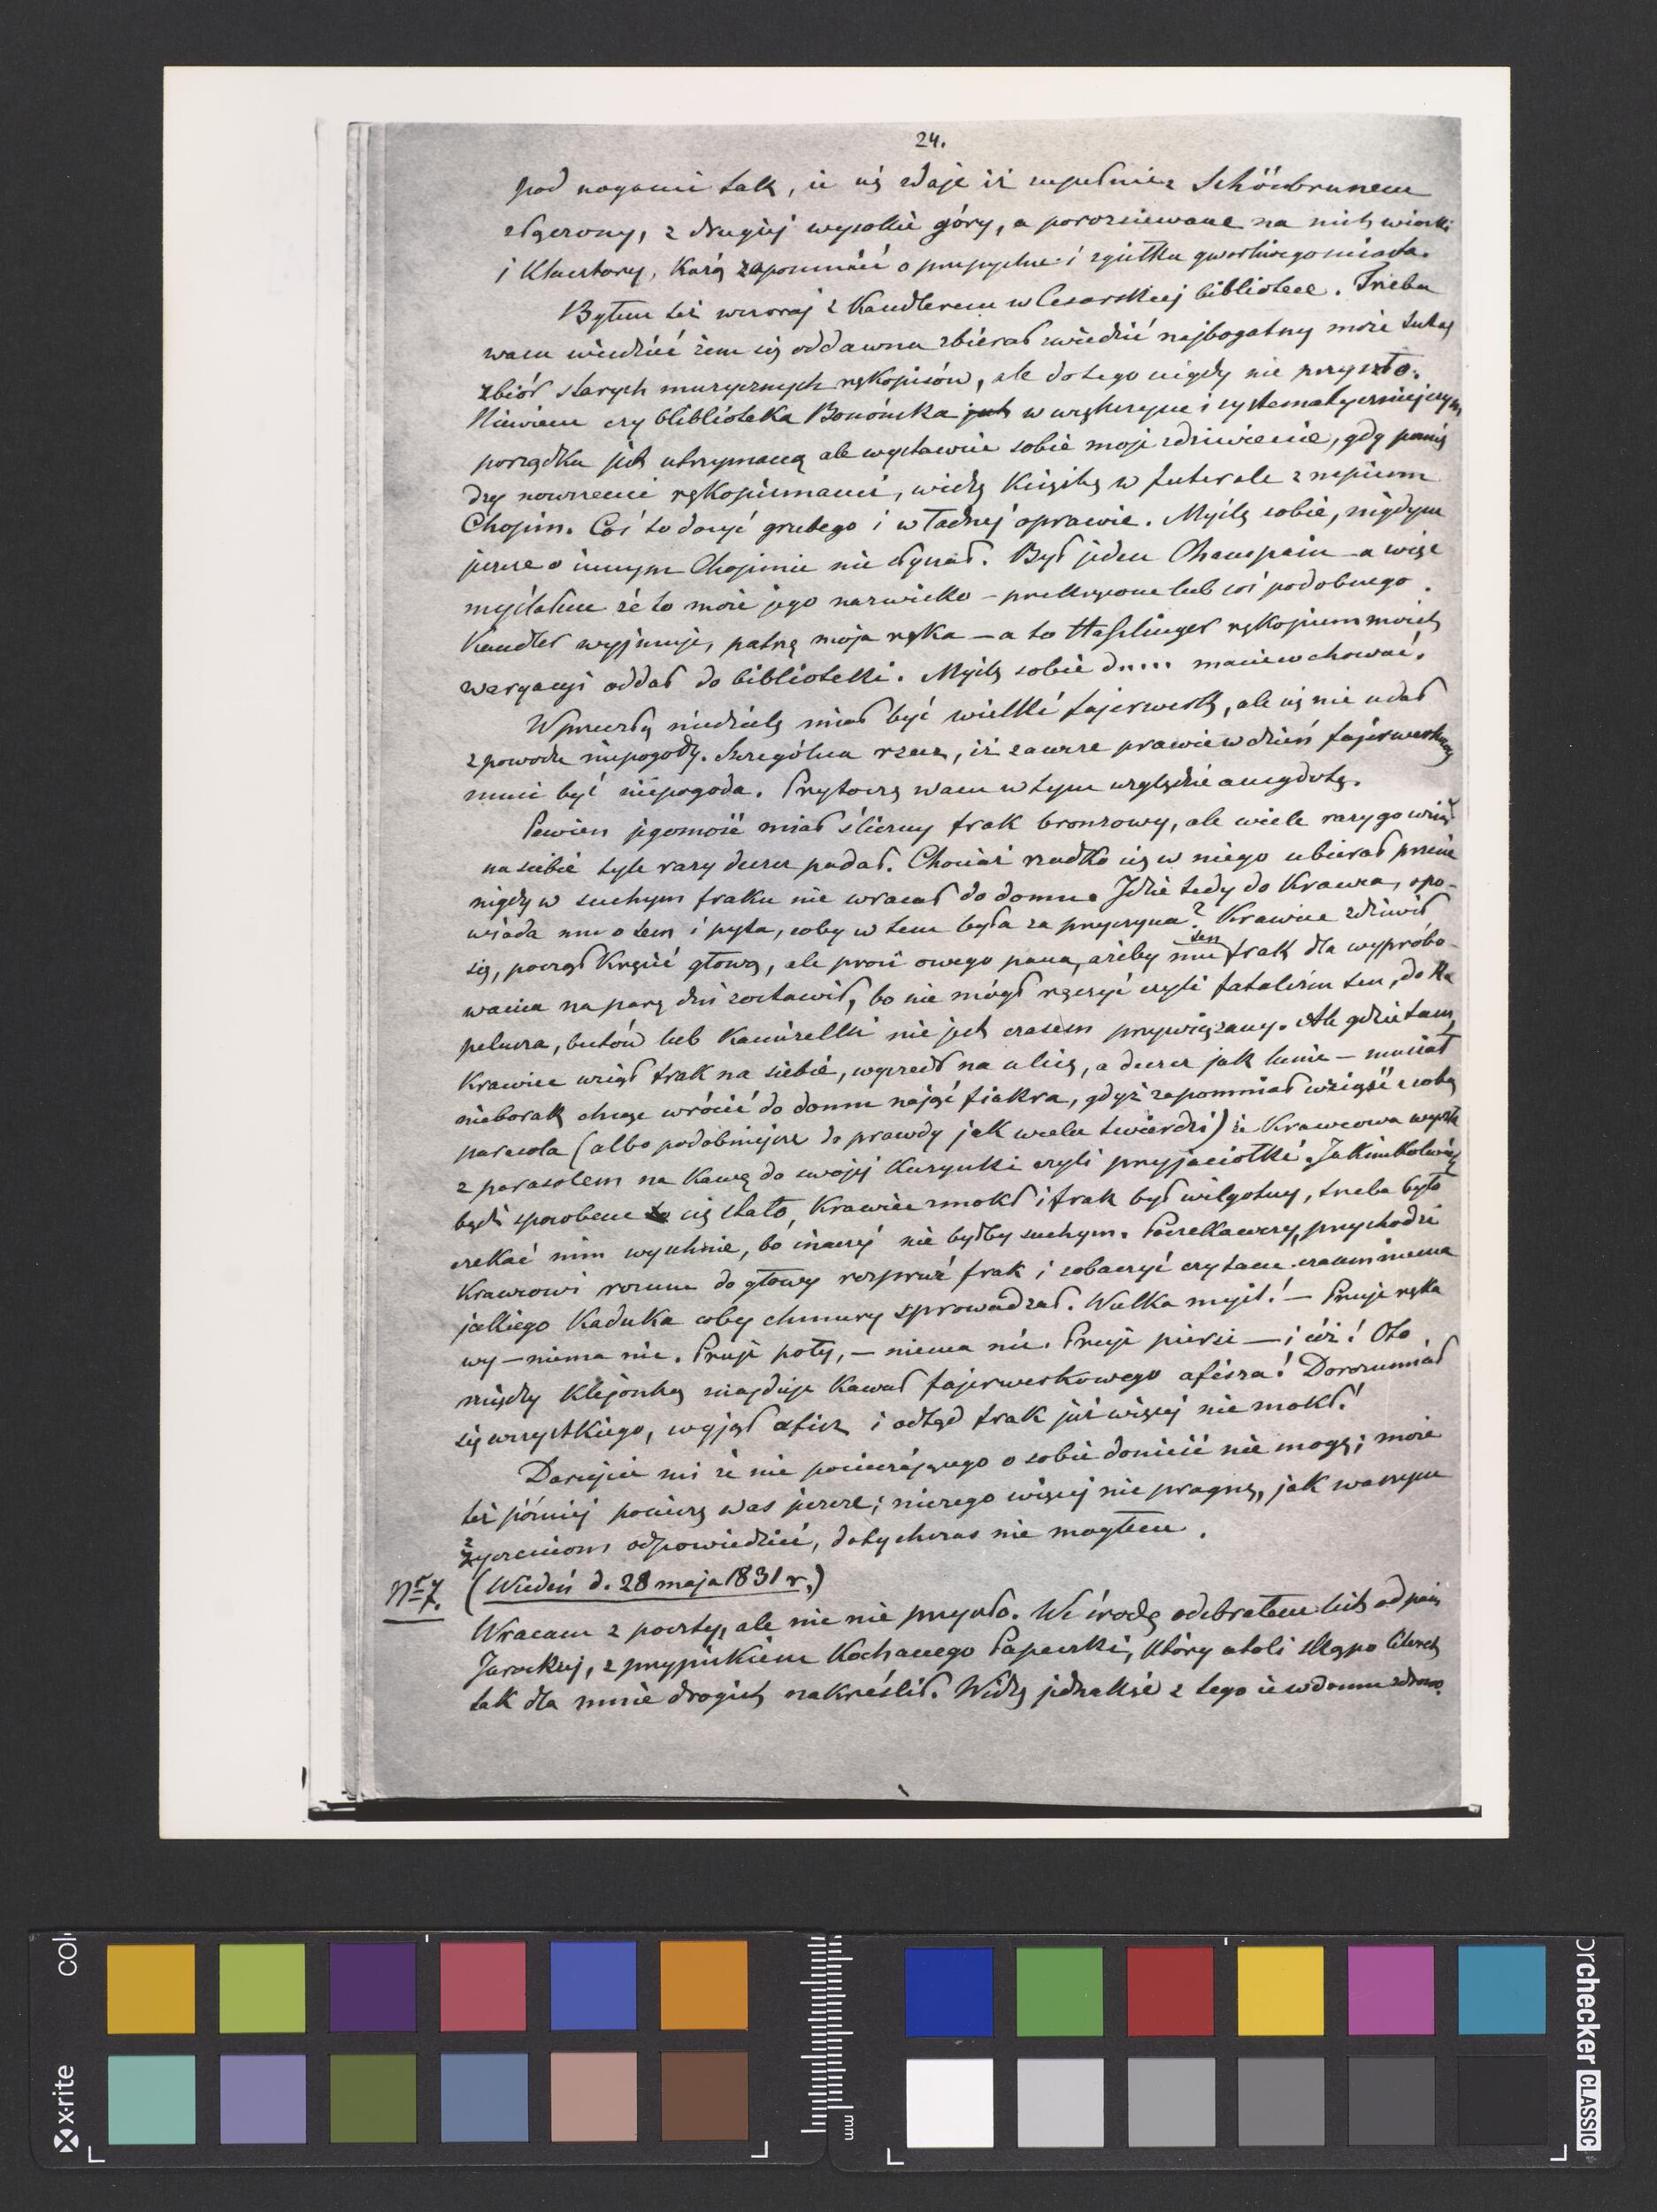 24.
pod nogami tak, iż się zdaje iż zupełnie z Schönbrunem
złączony, z drugiéj wysokie góry, a porozsiewane na nich wioski
i klasztory, każą zapomnieć o przepychu i zgiełku gwarliwego miasta.
Byłem też wczoraj z Kandlerem w Cesarskiej bibliotece. Trzeba
wam wiedzieć żem się oddawna zbierał zwiedzić najbogatszy może tutaj
zbiór starych muzycznych rękopisów, ale do tego nigdy nie przyszło.
Niewiem czy blibliotéka Bonońska jest w większym i systematyczniejszym
porządku jest utrzymaną ale wystawcie sobie moje zdziwienie, gdy pomię
dzy nowszemi rękopismami, widzę książkę w futerale z napisem
Chopin. Coś to dosyć grubego i w ładnéj oprawie. Myślę sobie, nigdym
jeszcze o innym Chopinie nie słyszał. Był jeden Champein – a więc
myślałem że to może jego nazwisko – przekręcone lub coś podobnego.
Kandler wyjmuje, patrzę moja ręka – a to Haslinger rękopism moich
waryacyi oddał do biblioteki. Myślę sobie d..... macie w chować.
W przeszłą niedzielę miał być wielki fajerwerk, ale się nie udał
z powodu niepogody. Szczególna rzecz, iż zawsze prawie w dzień fajerwerkowy
musi być niepogoda. Przytoczę wam w tym względzie anegdotę.
Pewien jegomość miał śliczny frak bronzowy, ale wiele razy go wziął
na siebie tyle razy deszcz padał. Chociaż rzadko się w niego ubierał przecie
nigdy w suchym fraku nie wracał do domu. Idzie tedy do Krawca, opo-
wiada mu o tem i pyta, coby w tem była za przyczyna? Krawiec zdziwił
się, począł kręcić głową, ale prosił owego pana, ażeby mu ten frak dla wypróbo-
wania na parę dni zostawił, bo nie mógł ręczyć czyli fatalizm ten, do ka
pelusza, butów lub kamizelki nie jest czasem przywiązany. Ale gdzie tam,
Krawiec wziął frak na siebie, wyszedł na ulicę, a deszcz jak lunie – musiał
nieborak chcąc wrócić do domu nająć fiakra, gdyż zapomniał wziąść z sobą
parasola (albo podobniejsze do prawdy jak wielu twierdzi) że Krawcowa wyszła
z parasolem na kawę do swojéj kuzynki czyli przyjaciółki. Jakimkolwiek
bądź sposobem to się stało, Krawiec zmokł i frak był wilgotny, trzeba było
czekać nim wyschnie, bo inaczéj nie byłby suchym. Poczekawszy, przychodzi
Krawcowi rozum do głowy rozpruć frak i zobaczyć czy tam czasem niema
jakiego Kaduka coby chmury sprowadzał. Wielka myśl! – Pruje ręka
wy – niema nic. Pruje poły, – niema nic. Pruje piersi – i cóż! Oto
między klejonką znajduje kawał fajerwerkowego afisza! Dorozumiał
się wszystkiego, wyjął afisz i odtąd frak już więcéj nie mokł!
Darujcie mi że nic pocieszającego o sobie donieść nie mogę; może
też później pocieszę was jeszcze; niczego więcej nie pragnę, jak waszym
życzeniom odpowiedzieć, dotychczas nie mogłem.
Nr 7. (Wiedeń d. 28 maja 1831 r.)
Wracam z poczty, ale nic nie przyszło. We środę odebrałem list od pani
Jarockiej, z przypiskiem Kochanego Papeczki, który atoli skąpo literek
tak dla mnie drogich nakreślił. Widzę jednakże z tego iż w domu zdrowo.
x-rite
colorchecker CLASSIC
mm